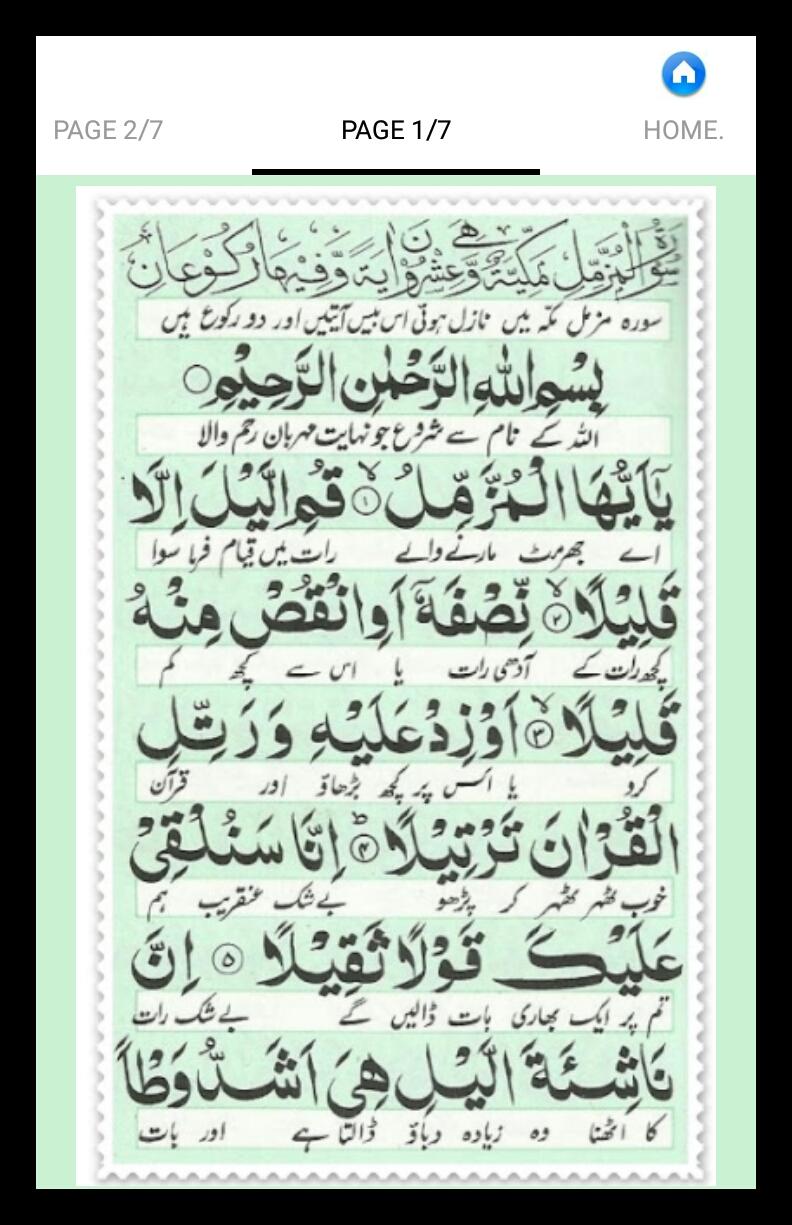 PAGE 2/7 PAGE 1/7 HOME.
سُوْرَةُ الْمُزَّمِّلِ مَكِّيَّةٌ وَّهِيَ عِشْرُوْنَ اٰيَةً وَّفِيْهَا رُكُوْعَانِ
سورہ مزمل مکہ میں نازل ہوئی اس بیس آیتیں اور دو رکوع ہیں
بِسْمِ اللهِ الرَّحْمٰنِ الرَّحِيْمِ
اللہ کے نام سے شروع جو نہایت مہربان رحم والا
يٰۤاَيُّهَا الْمُزَّمِّلُ ۙ‏﴿۱﴾ قُمِ الَّيْلَ اِلَّا
اے جھرمٹ مارنے والے رات میں قیام فرما سوا
قَلِيْلًا ۙ‏﴿۲﴾ نِّصْفَهٗۤ اَوِ انْقُصْ مِنْهُ
کچھ رات کے آدھی رات یا اس سے کچھ کم
قَلِيْلًا ۙ‏﴿۳﴾ اَوْ زِدْ عَلَيْهِ وَ رَتِّلِ
کرو یا اس پر کچھ بڑھاؤ اور قرآن
الْقُرْاٰنَ تَرْتِيْلًا ؕ‏﴿۴﴾ اِنَّا سَنُلْقِيْ
خوب ٹھہر ٹھہر کر پڑھو بے شک عنقریب ہم
عَلَيْكَ قَوْلًا ثَقِيْلًا ﴿۵﴾ اِنَّ
تم پر ایک بھاری بات ڈالیں گے بے شک رات
نَاشِئَةَ الَّيْلِ هِيَ اَشَدُّ وَطْاً
کا اٹھنا وہ زیادہ دباؤ ڈالتا ہے اور بات